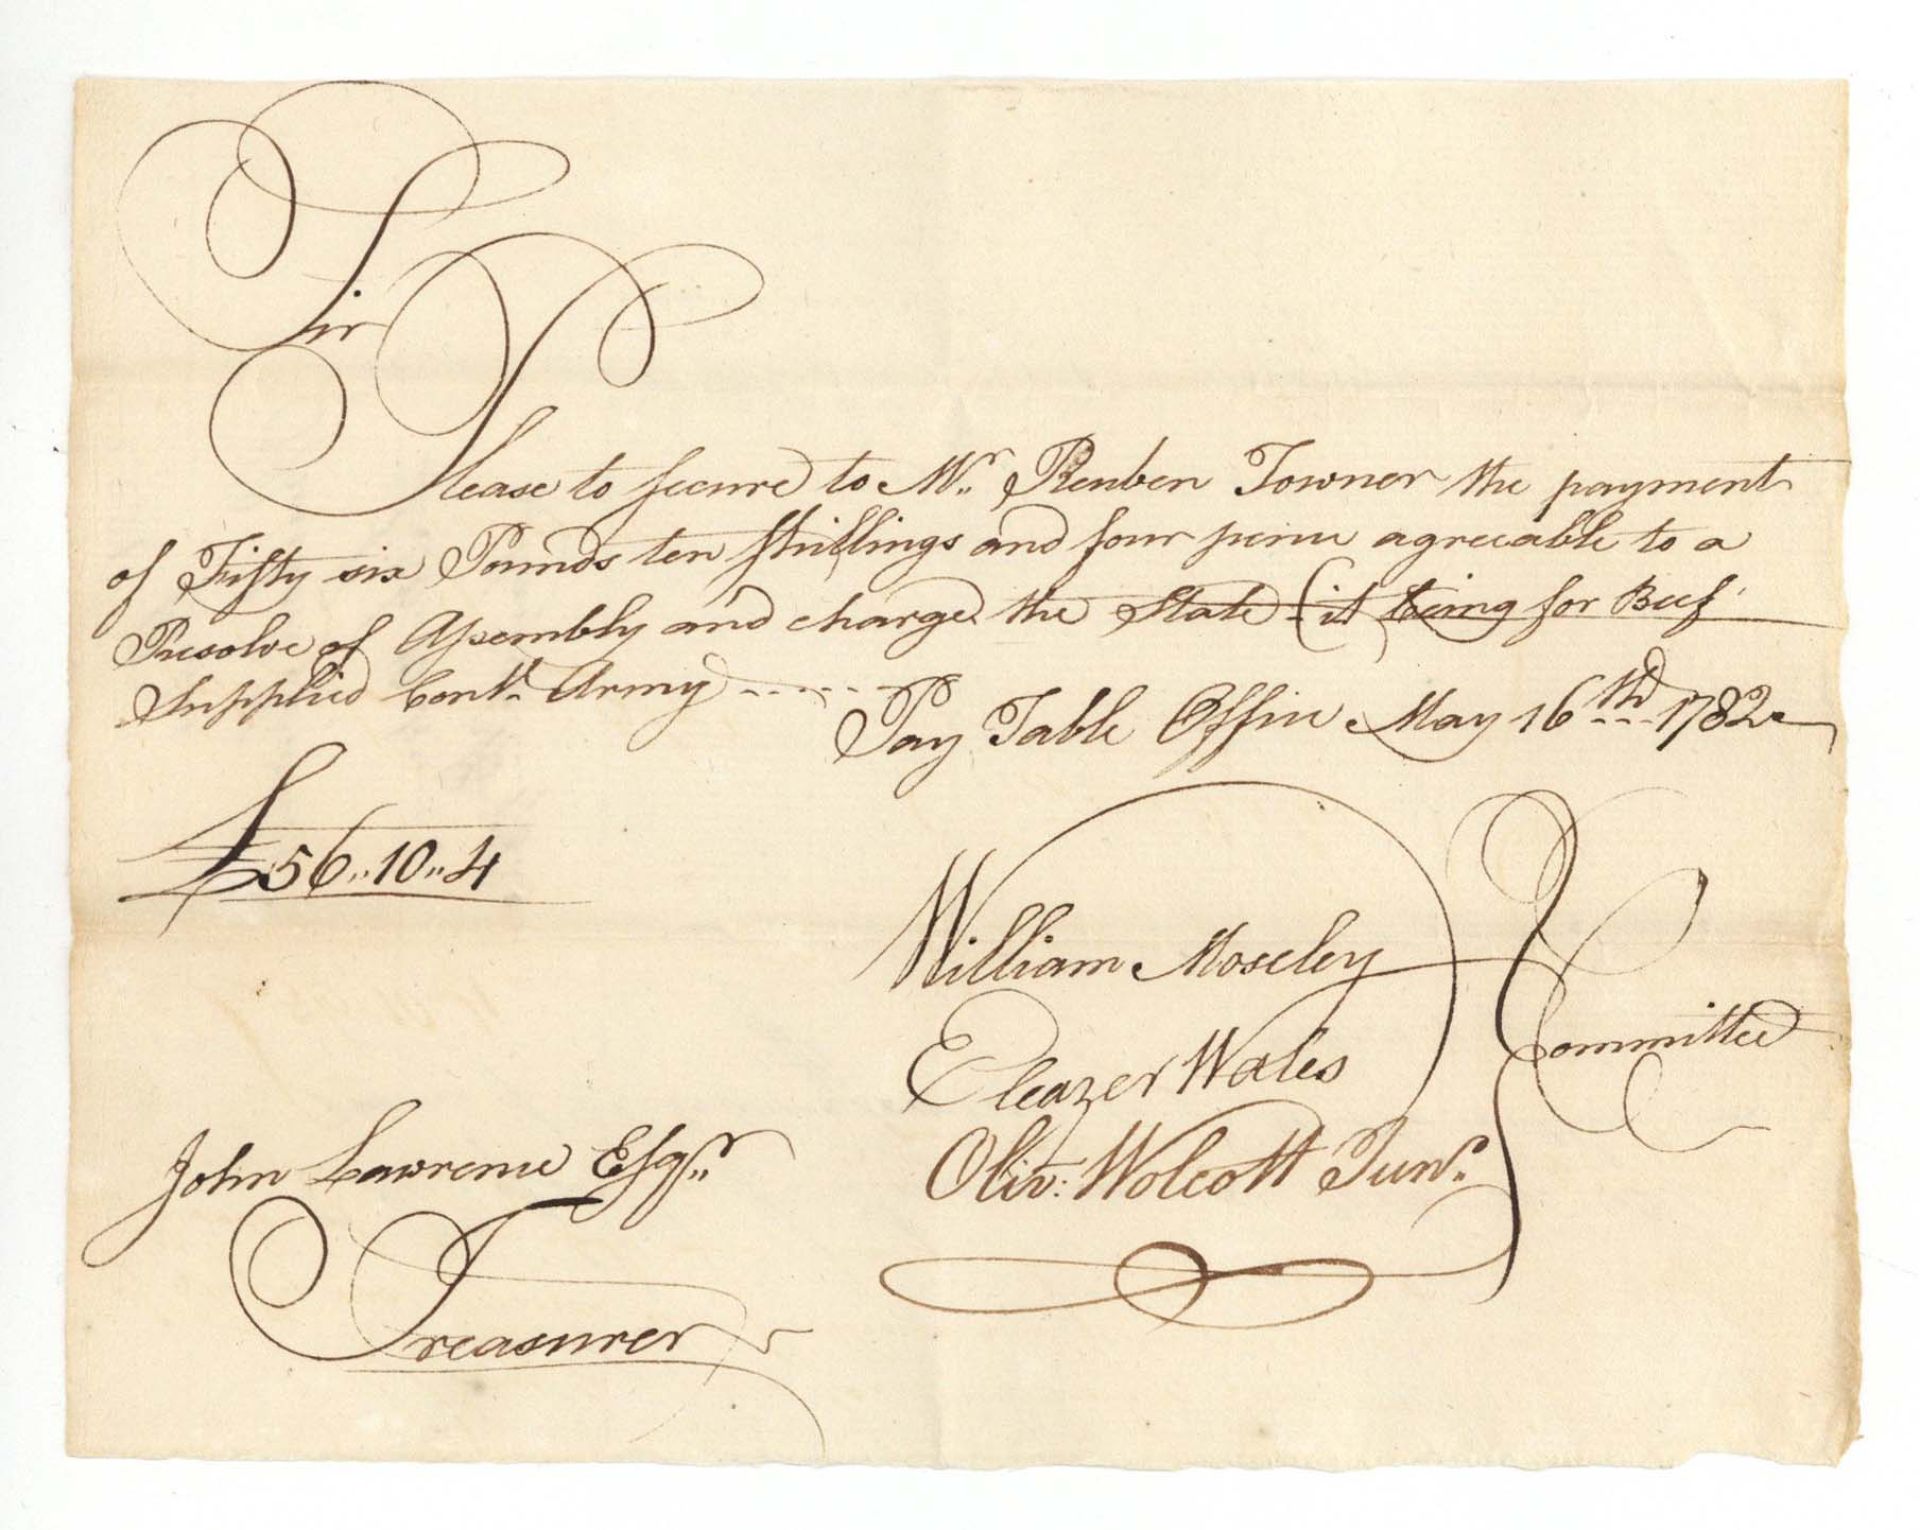 Sir
Please to secure to Mr. Reuben Towner the payment
of Fifty six Pounds ten shillings and four pence agreeable to a
Resolve of Assembly and charge the State (it being for Beef
Supplied Contl. Army -----
Pay Table Office May 16th 1782
£56..10..4
William Moseley
Eleazer Wales
Committee
Oliv: Wolcott Junr.
John Lawrence Esqr.
Treasurer